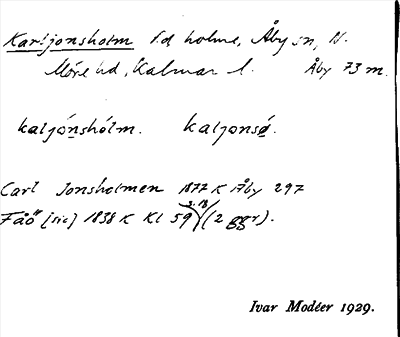 Karljonsholm f.d holme, Åby sn, N.
Möre hd, Kalmar l. Åby 73 m.
kaljónshólm. kaljonsö.
Carl Jonsholmen 1872 K i Åby 297
Fåö [sic] 1838 K Kl 59 (2 ggr).
s. 18
Ivar Modéer 1929.